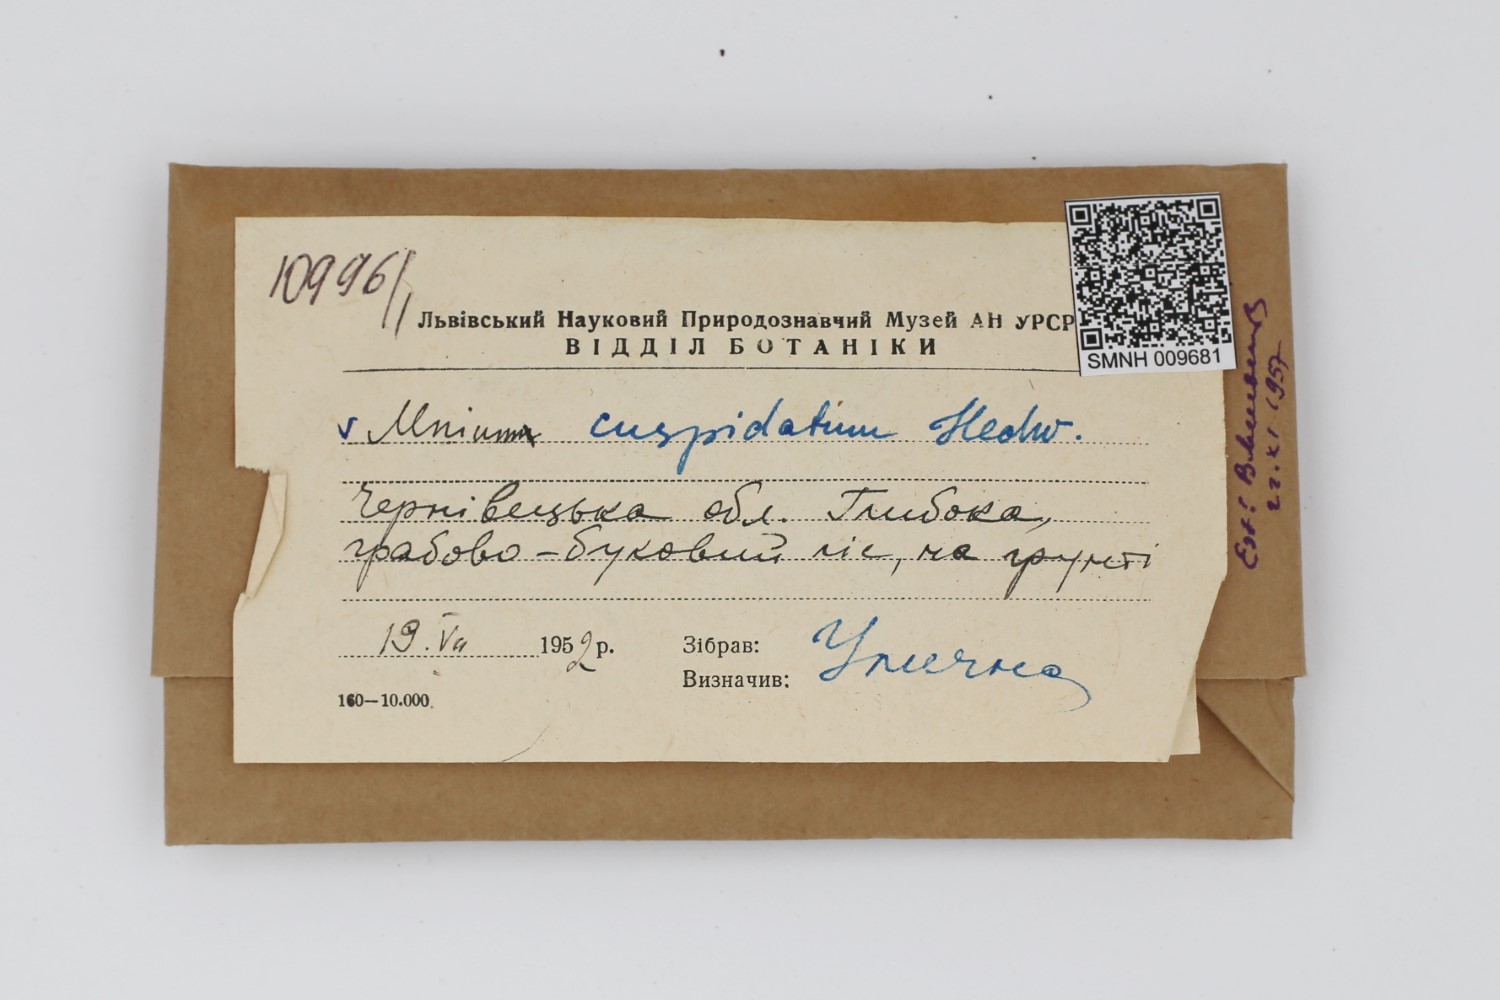 10996/1
Львівський Науковий Природознавчий Музей АН УРСР
ВІДДІЛ БОТАНІКИ
SMNH 009681
v Mnium cuspidatum Hedw.
Чернівецька обл. Глибока,
грабово-буковий ліс, на ґрунті
19.VII 1952 р.
Зібрав: Улична
Визначив:
160—10.000
22.XI 1957